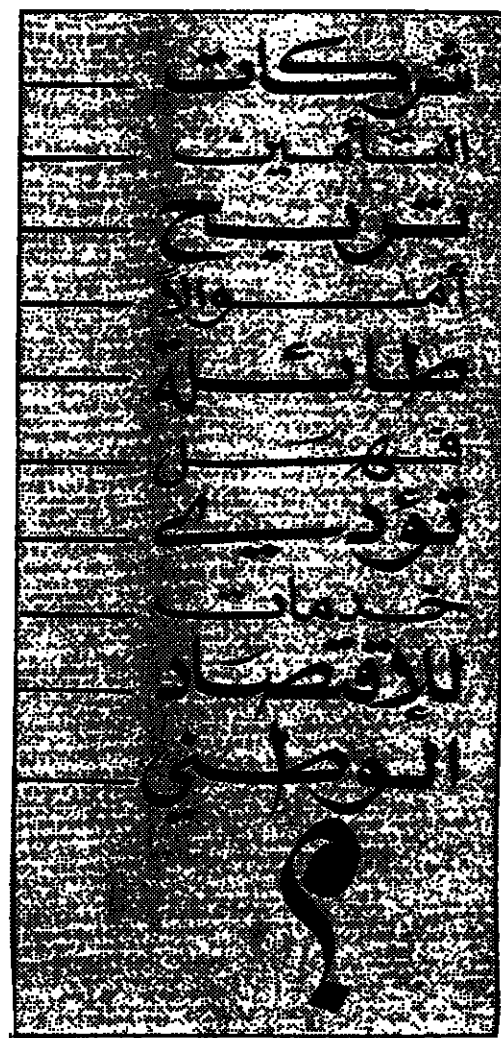 شركات
التأمين
تربح
أموالاً
طائلة
فهل
تؤدي
خدمات
للإقتصاد
الوطني
؟